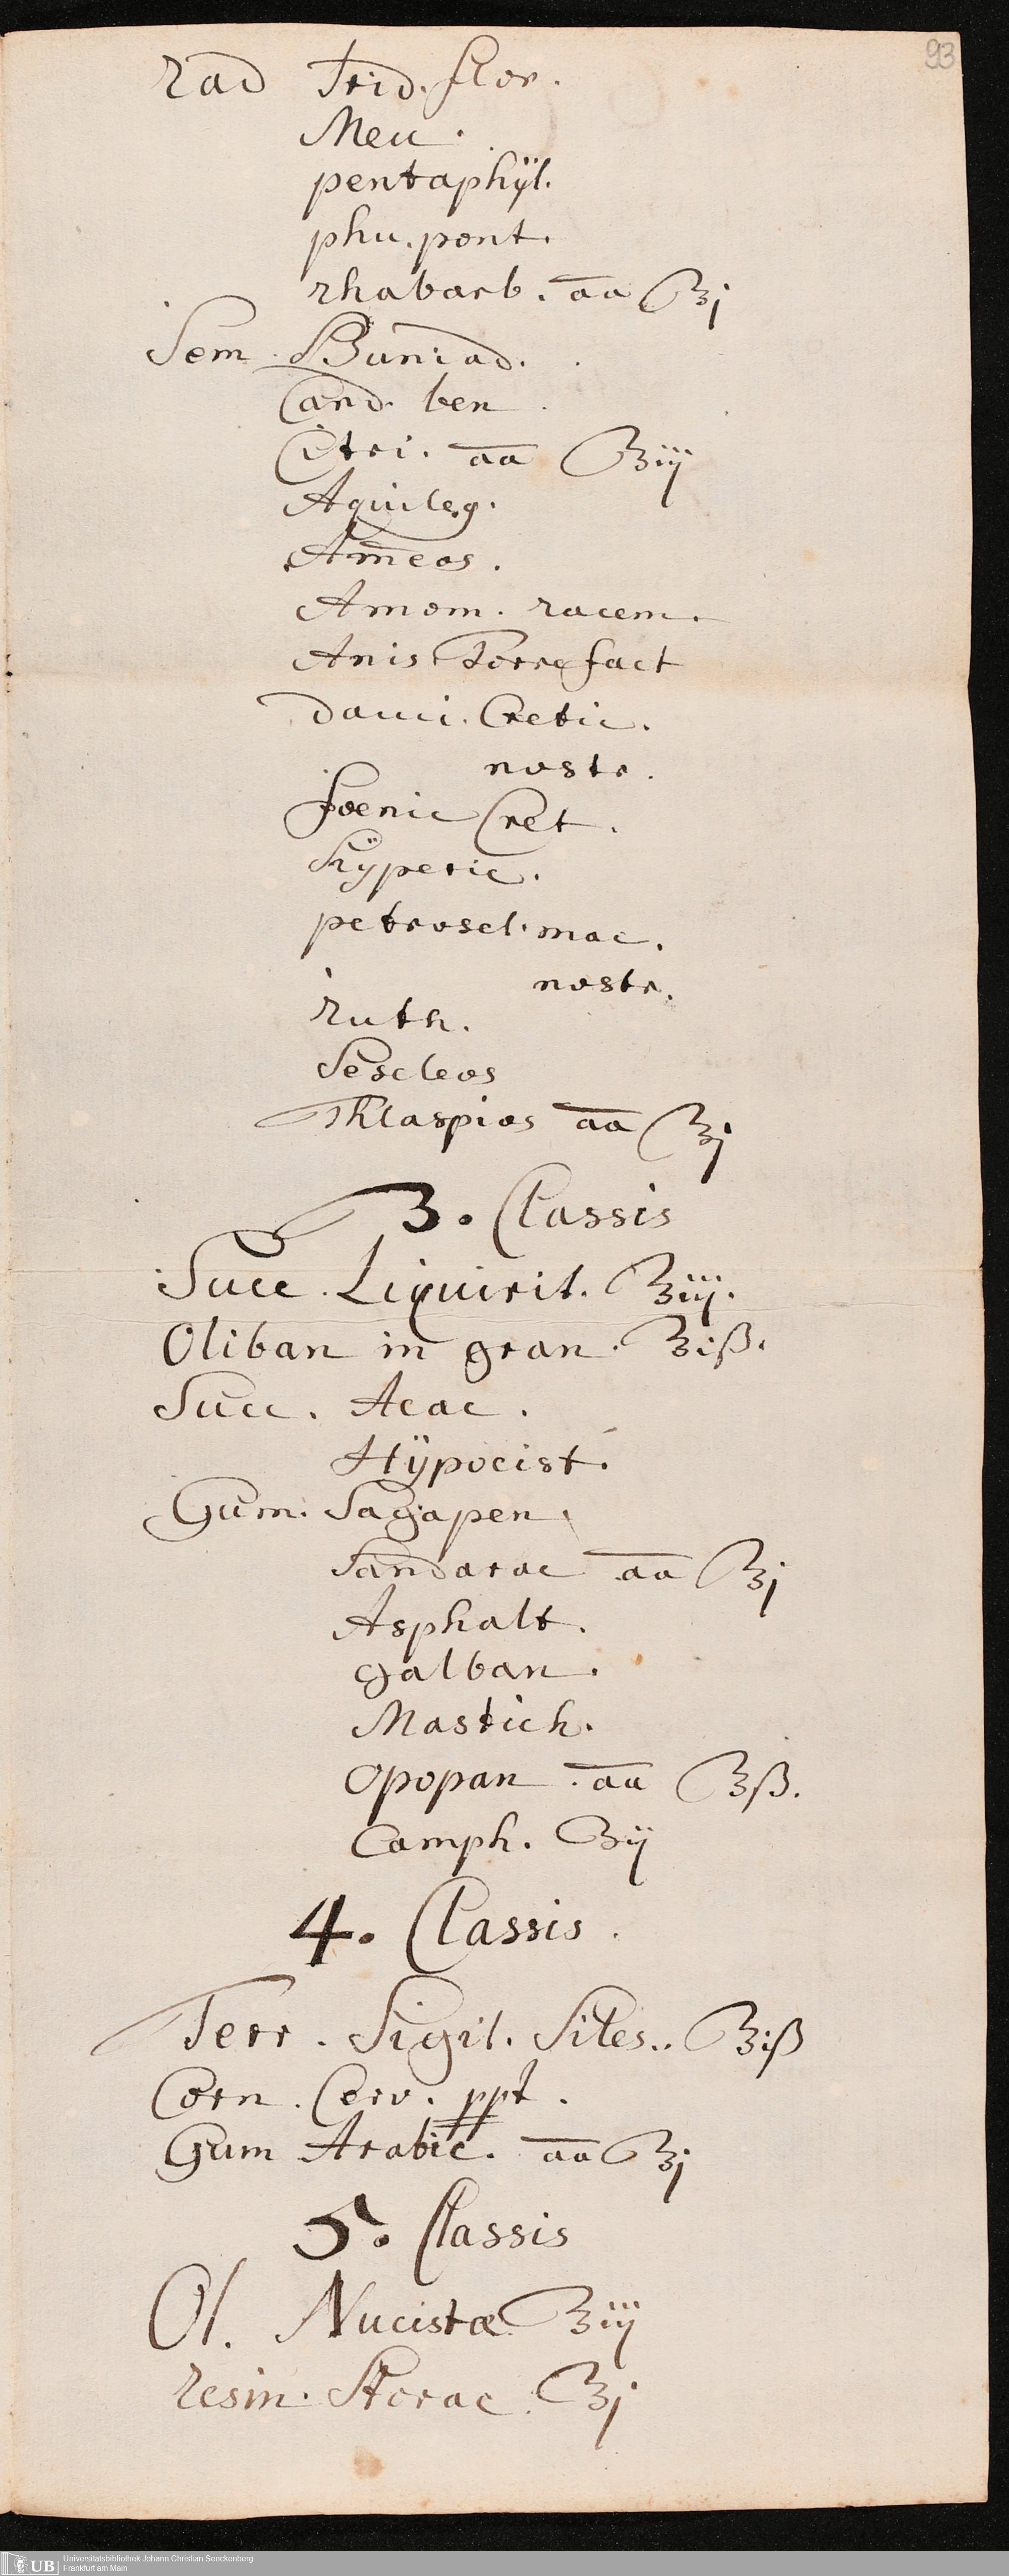 93
rad Irid. flor.
Meu.
pentaphÿl.
phu. pont.
rhabarb. aa ℥j
Sem. Buniad.
Card. ben
Citri. aa ℥iij
Aquileg.
Am̄eos.
Amom. racem.
Anis Torrefact
dauci. Cretic.
nostr.
foenic Cret.
hÿperic.
petrosel. mac.
nostr.
ruth.
Seseleos
Thlaspios aa ℥j
3. Classis
Succ. Liquirit. ℥iij.
Oliban in gran. ℥iß.
Succ. Acac.
Hÿpocist.
Gum. Sagapen.
Sandarac aa ℥j
Asphalt.
galban.
Mastich.
Opopan. aa ℥ß.
Camph. ℥ij
4. Classis.
Terr. Sigil. Siles.. ℥iß
Corn. Cerv. ppt.
Gum Arabic. aa ℥j
5. Classis
Ol. Nucistæ ℥iij
resin. Storac. ℥j
UB Universitätsbibliothek Johann Christian Senckenberg
Frankfurt am Main